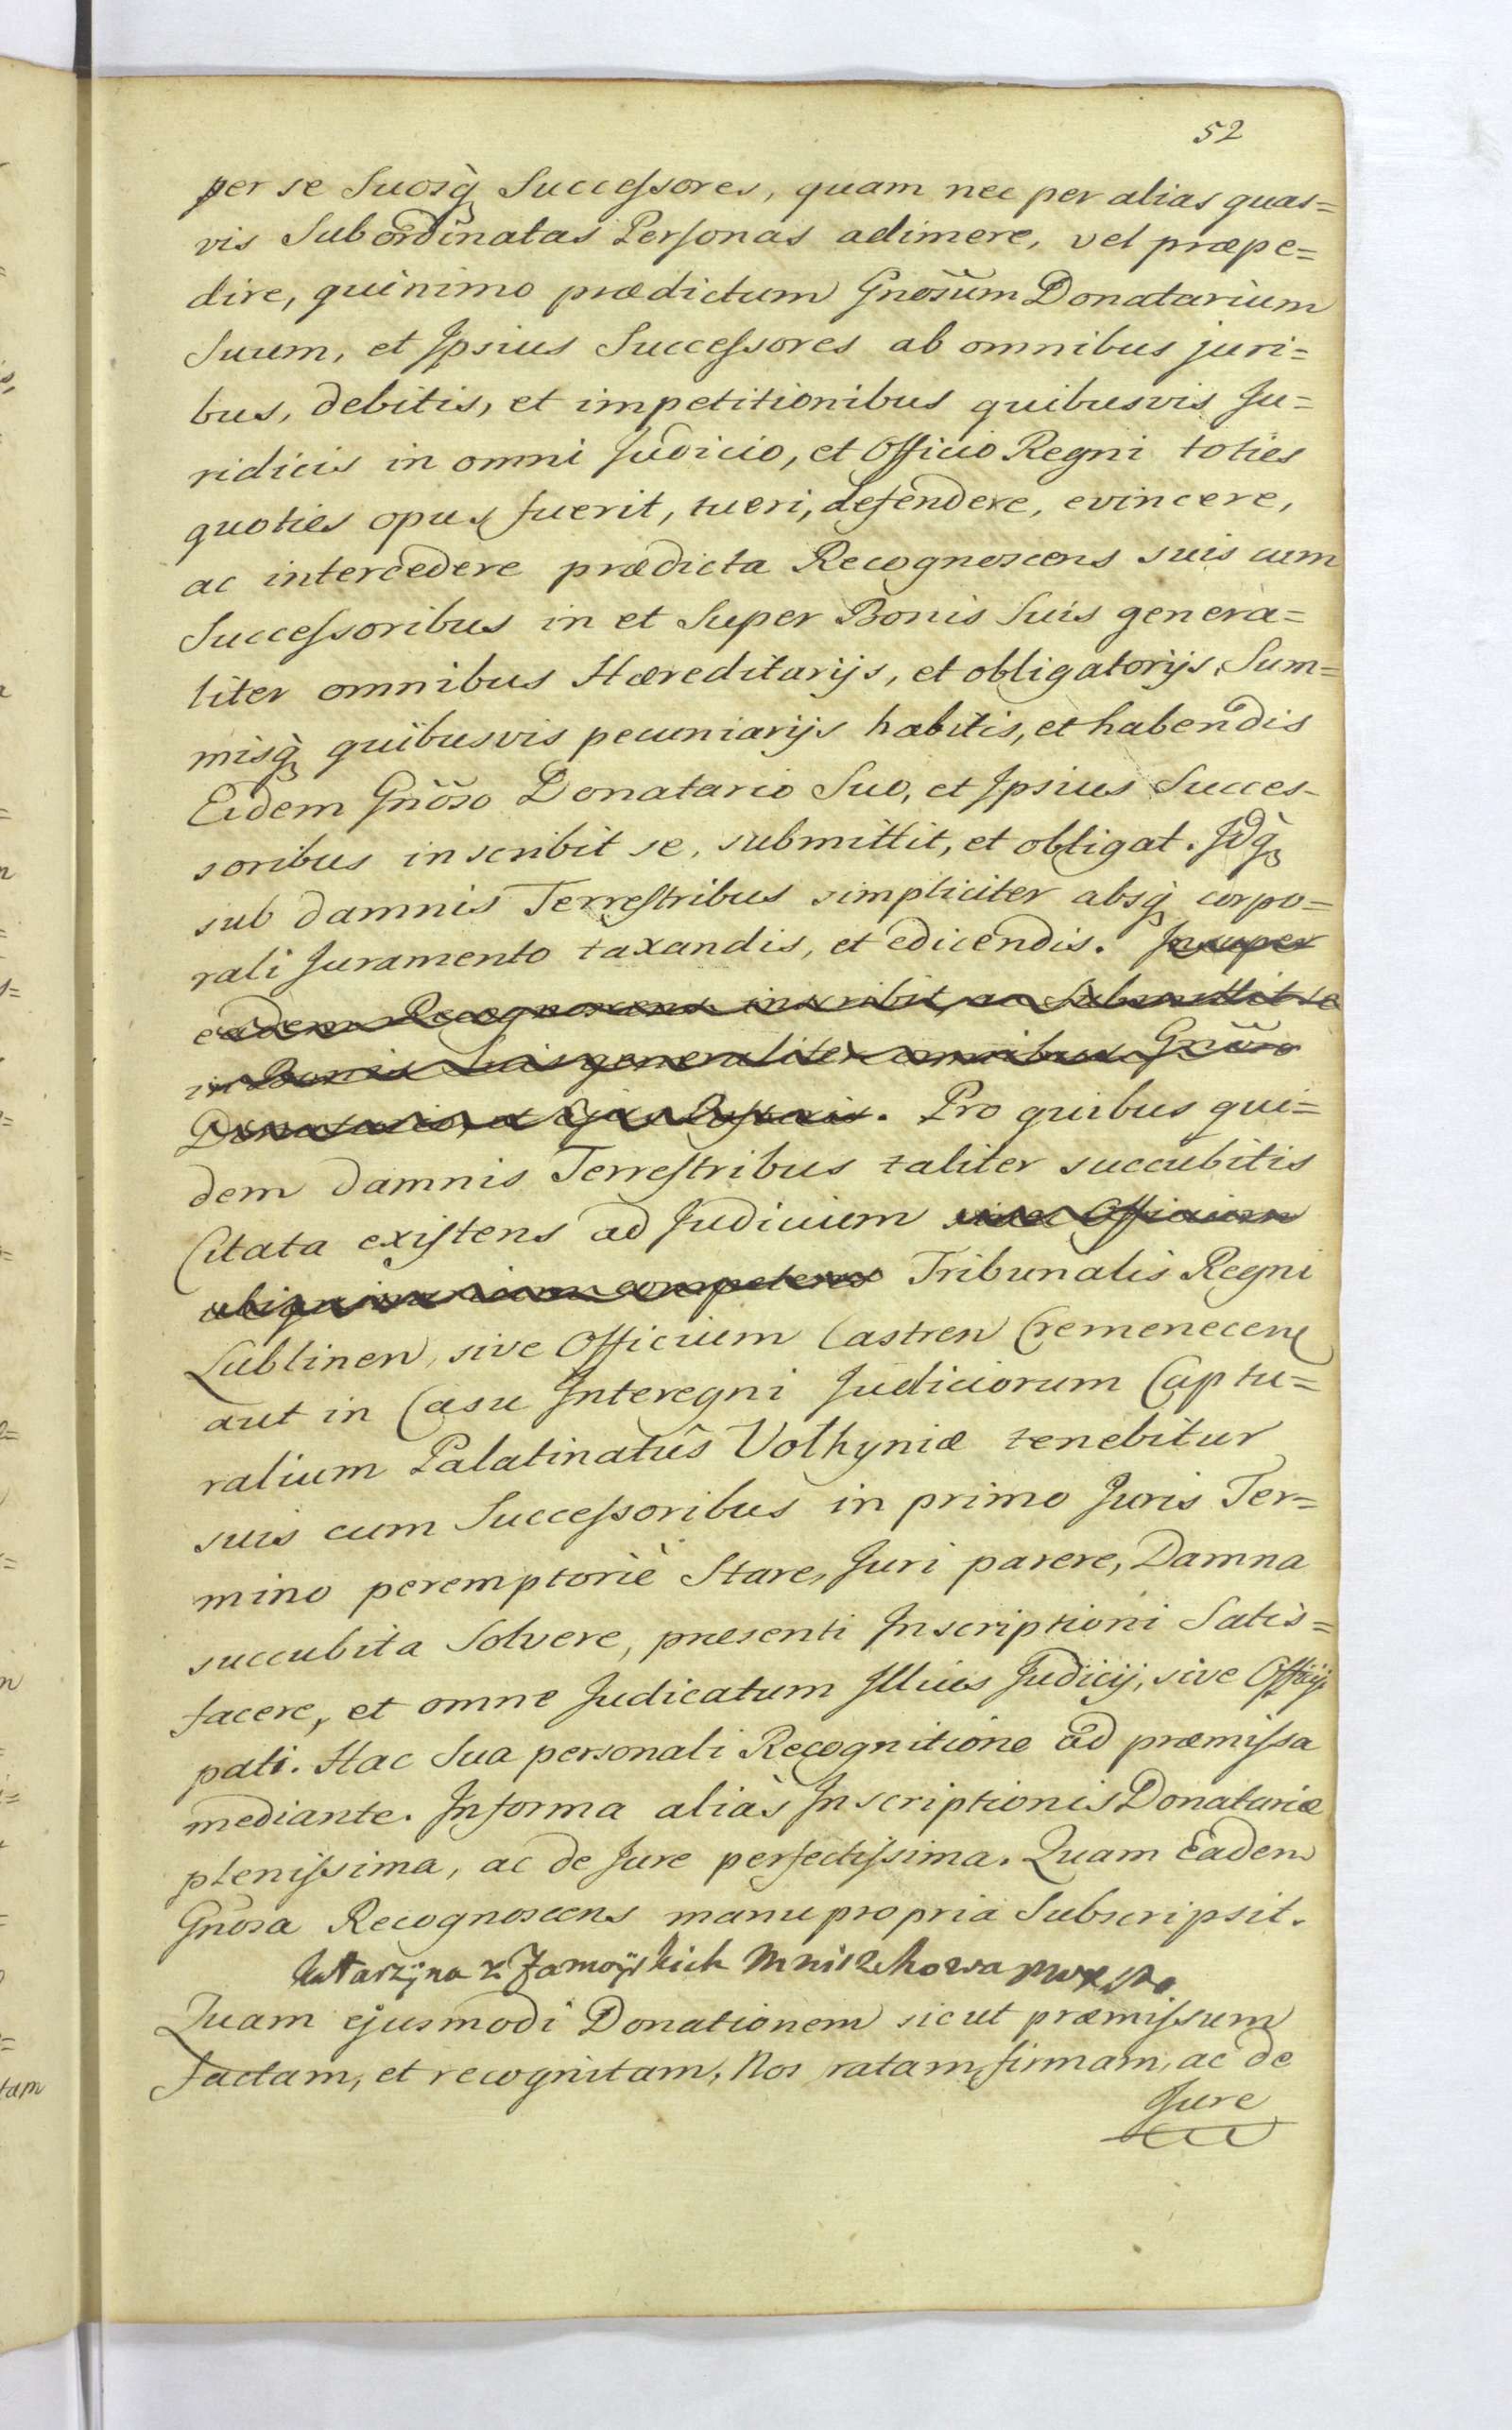 52
per se Suosq̀ Successores, quam nec per alias quas=
vis Subordinatas Personas adimere, vel præpe=
dire, quinimo prædictum Gnõsum Donatarium
Suum, et Ipsius Successores ab omnibus juri=
bus, debitis, et impetitionibus quibusvis Ju=
ridicis in omni Judicio, et Officio Regni toties
quoties opus fuerit, tueri, defendere, evincere,
ac intercedere prædicta Recognoscens suis cum
Successoribus in et Super Bonis Suis genera=
liter omnibus Hæreditarijs, et obligatorijs, Sum=
misq̀ quibusvis pecuniarijs habitis, et habendis
Eidem Gnõso Donatario Suo, et Ipsius Succes-
soribus inscribit se, submittit, et obligat. Idq̀
sub damnis Terrestribus simpliciter absq̀ corpo=
rali Juramento taxandis, et edicendis. Insuper
eadem Recognoscens inscribit, ac Submittit se
in Bonis Suis generaliter omnibus Gnõso
Donatario, et Ejus. Pro quibus qui=
dem damnis Terrestribus taliter succubitis
Citata existens ad Judicium sive Officium
competens Tribunalis Regni
Lublinen, sive Officium Castren Cremenecen
aut in Casu Interegni Judiciorum Captu=
ralium Palatinatûs Volhyniæ tenebitur
suis cum Successoribus in primo Juris Ter=
mino peremptoriè Stare, Juri parere, Damna
succubita Solvere, præsenti Inscriptioni Satis=
facere, et omne Judicatum Illius Judicij, sive Officij
pati. Hac Sua personali Recognitione ad præmissa
mediante. In forma aliàs Inscriptionis Donatariæ
plenissima, ac de Jure perfectissima. Quam Eadem
Gnõsa Recognoscens manu propria Subscripsit.
Katarzyna z Zamoyskich Mniszchowa
Quam ejusmodi Donationem sic ut præmissum
factam, et recognitam, Nos ratam, firmam, ac de
Jure